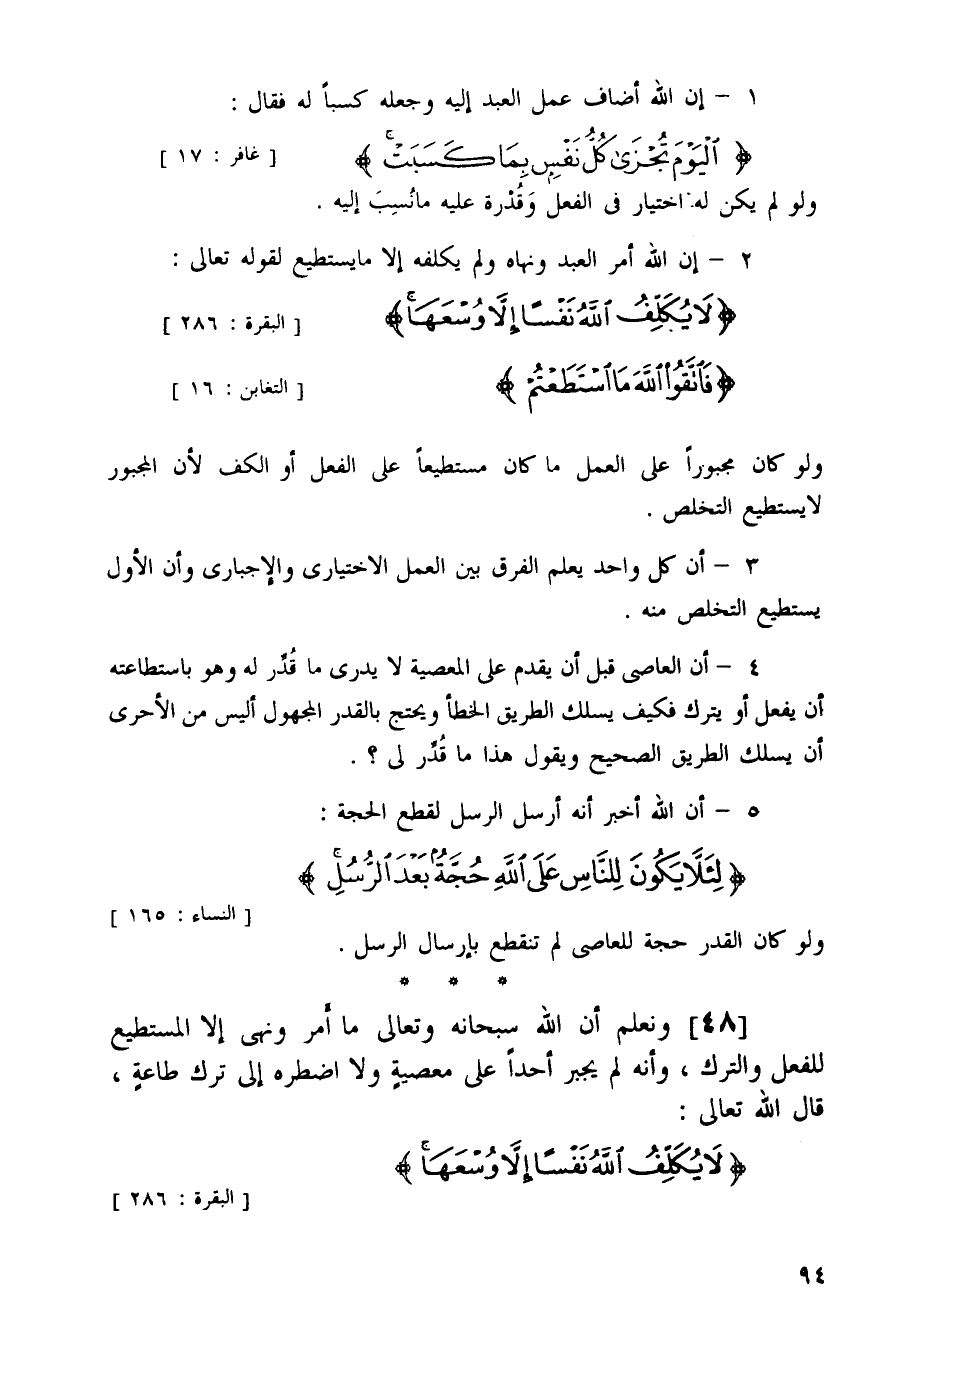 ١ – إن الله أضاف عمل العبد إليه وجعله كسباً له فقال :
﴿ ٱلْيَوْمَ تُجْزَىٰ كُلُّ نَفْسٍ بِمَا كَسَبَتْ ۚ ﴾ [ غافر : ١٧ ]
ولو لم يكن له اختيار فى الفعل وَقُدْرة عليه مانُسِبَ إليه .
٢ – إن الله أمر العبد ونهاه ولم يكلفه إلا مايستطيع لقوله تعالى :
﴿ لَا يُكَلِّفُ ٱللَّهُ نَفْسًا إِلَّا وُسْعَهَا ۚ ﴾ [ البقرة : ٢٨٦ ]
﴿ فَٱتَّقُوا۟ ٱللَّهَ مَا ٱسْتَطَعْتُمْ ﴾ [ التغابن : ١٦ ]
ولو كان مجبوراً على العمل ما كان مستطيعاً على الفعل أو الكف لأن المجبور
لايستطيع التخلص .
٣ – أن كل واحد يعلم الفرق بين العمل الاختيارى والإجبارى وأن الأول
يستطيع التخلص منه .
٤ – أن العاصى قبل أن يقدم على المعصية لا يدرى ما قُدِّر له وهو باستطاعته
أن يفعل أو يترك فكيف يسلك الطريق الخطأ ويحتج بالقدر المجهول أليس من الأحرى
أن يسلك الطريق الصحيح ويقول هذا ما قُدِّر لى ؟ .
٥ – أن الله أخبر أنه أرسل الرسل لقطع الحجة :
﴿ لِئَلَّا يَكُونَ لِلنَّاسِ عَلَى ٱللَّهِ حُجَّةٌۢ بَعْدَ ٱلرُّسُلِ ۚ ﴾
[ النساء : ١٦٥ ]
ولو كان القدر حجة للعاصى لم تنقطع بإرسال الرسل .
* * *
[٤٨] ونعلم أن الله سبحانه وتعالى ما أَمر ونهى إلا المستطيع
للفعل والترك ، وأنه لم يجبر أحداً على معصيةٍ ولا اضطره إلى ترك طاعةٍ ،
قال الله تعالى :
﴿ لَا يُكَلِّفُ ٱللَّهُ نَفْسًا إِلَّا وُسْعَهَا ۚ ﴾
[ البقرة : ٢٨٦ ]
٩٤